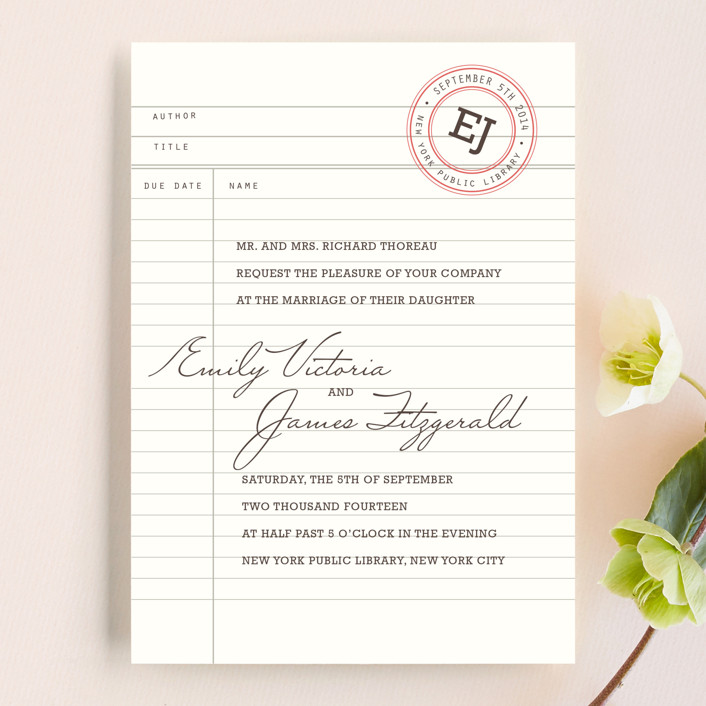 SEPTEMBER 5TH 2014
EJ
• NEW YORK PUBLIC LIBRARY •
AUTHOR
TITLE
DUE DATE
NAME
MR. AND MRS. RICHARD THOREAU
REQUEST THE PLEASURE OF YOUR COMPANY
AT THE MARRIAGE OF THEIR DAUGHTER
Emily Victoria
AND
James Fitzgerald
SATURDAY, THE 5TH OF SEPTEMBER
TWO THOUSAND FOURTEEN
AT HALF PAST 5 O'CLOCK IN THE EVENING
NEW YORK PUBLIC LIBRARY, NEW YORK CITY